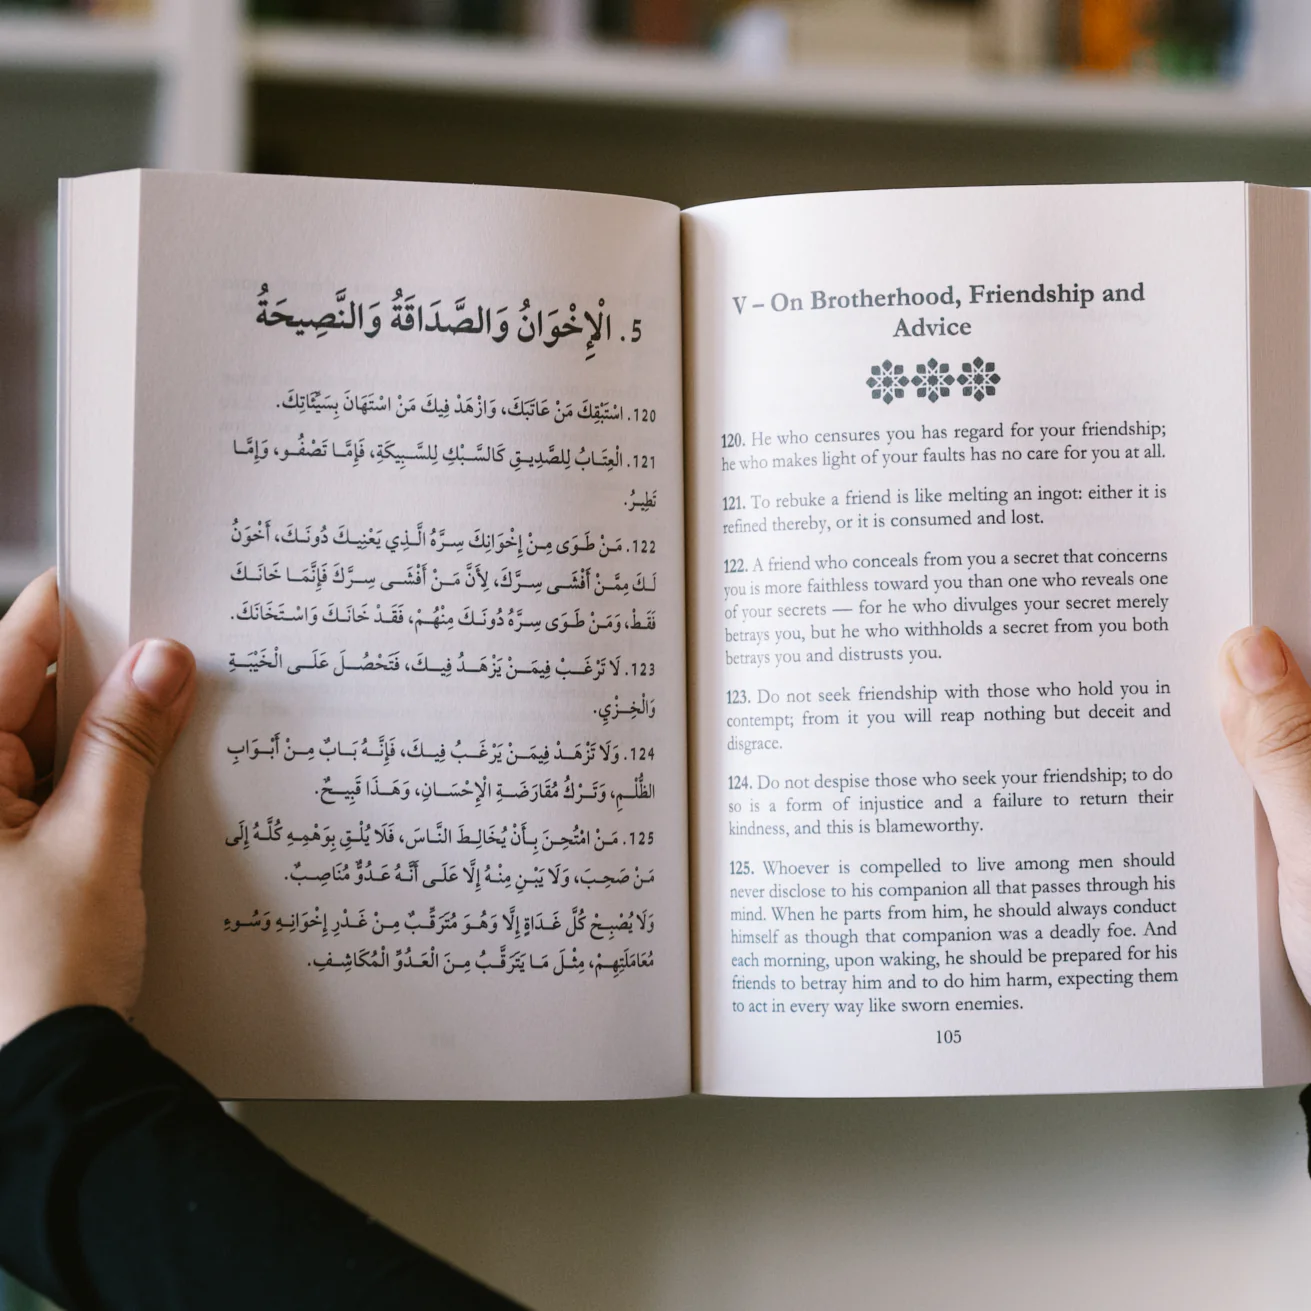 5. الْإِخْوَانُ وَالصَّدَاقَةُ وَالنَّصِيحَةُ
120. اسْتَبْقِكَ مَنْ عَاتَبَكَ، وَازْهَدْ فِيكَ مَنْ اسْتَهَانَ بِسَيِّئَاتِكَ.
121. الْعِتَابُ لِلصَّدِيقِ كَالسَّبْكِ لِلسَّبِيكَةِ، فَإِمَّا تَصْفُو، وَإِمَّا
تَطِيرُ.
122. مَنْ طَوَى مِنْ إِخْوَانِكَ سِرَّهُ الَّذِي يَعْنِيكَ دُونَكَ، أَخْوَنُ
لَكَ مِمَّنْ أَفْشَى سِرَّكَ، لِأَنَّ مَنْ أَفْشَى سِرَّكَ فَإِنَّمَا خَانَكَ
فَقَطْ، وَمَنْ طَوَى سِرَّهُ دُونَكَ مِنْهُمْ، فَقَدْ خَانَكَ وَاسْتَخَانَكَ.
123. لَا تَرْغَبْ فِيمَنْ يَزْهَدُ فِيكَ، فَتَحْصُلَ عَلَى الْخَيْبَةِ
وَالْخِزْيِ.
124. وَلَا تَزْهَدْ فِيمَنْ يَرْغَبُ فِيكَ، فَإِنَّهُ بَابٌ مِنْ أَبْوَابِ
الظُّلْمِ، وَتَرْكُ مُقَارَضَةِ الْإِحْسَانِ، وَهَذَا قَبِيحٌ.
125. مَنْ امْتُحِنَ بِأَنْ يُخَالِطَ النَّاسَ، فَلَا يُلْقِ بِوَهْمِهِ كُلَّهُ إِلَى
مَنْ صَحِبَ، وَلَا يَبْنِ مِنْهُ إِلَّا عَلَى أَنَّهُ عَدُوٌّ مُنَاصِبٌ.
وَلَا يُصْبِحْ كُلَّ غَدَاةٍ إِلَّا وَهُوَ مُتَرَقِّبٌ مِنْ غَدْرِ إِخْوَانِهِ وَسُوءِ
مُعَامَلَتِهِمْ، مِثْلَ مَا يَتَرَقَّبُ مِنَ الْعَدُوِّ الْمُكَاشِفِ.
V – On Brotherhood, Friendship and
Advice
120. He who censures you has regard for your friendship;
he who makes light of your faults has no care for you at all.
121. To rebuke a friend is like melting an ingot: either it is
refined thereby, or it is consumed and lost.
122. A friend who conceals from you a secret that concerns
you is more faithless toward you than one who reveals one
of your secrets — for he who divulges your secret merely
betrays you, but he who withholds a secret from you both
betrays you and distrusts you.
123. Do not seek friendship with those who hold you in
contempt; from it you will reap nothing but deceit and
disgrace.
124. Do not despise those who seek your friendship; to do
so is a form of injustice and a failure to return their
kindness, and this is blameworthy.
125. Whoever is compelled to live among men should
never disclose to his companion all that passes through his
mind. When he parts from him, he should always conduct
himself as though that companion was a deadly foe. And
each morning, upon waking, he should be prepared for his
friends to betray him and to do him harm, expecting them
to act in every way like sworn enemies.
105